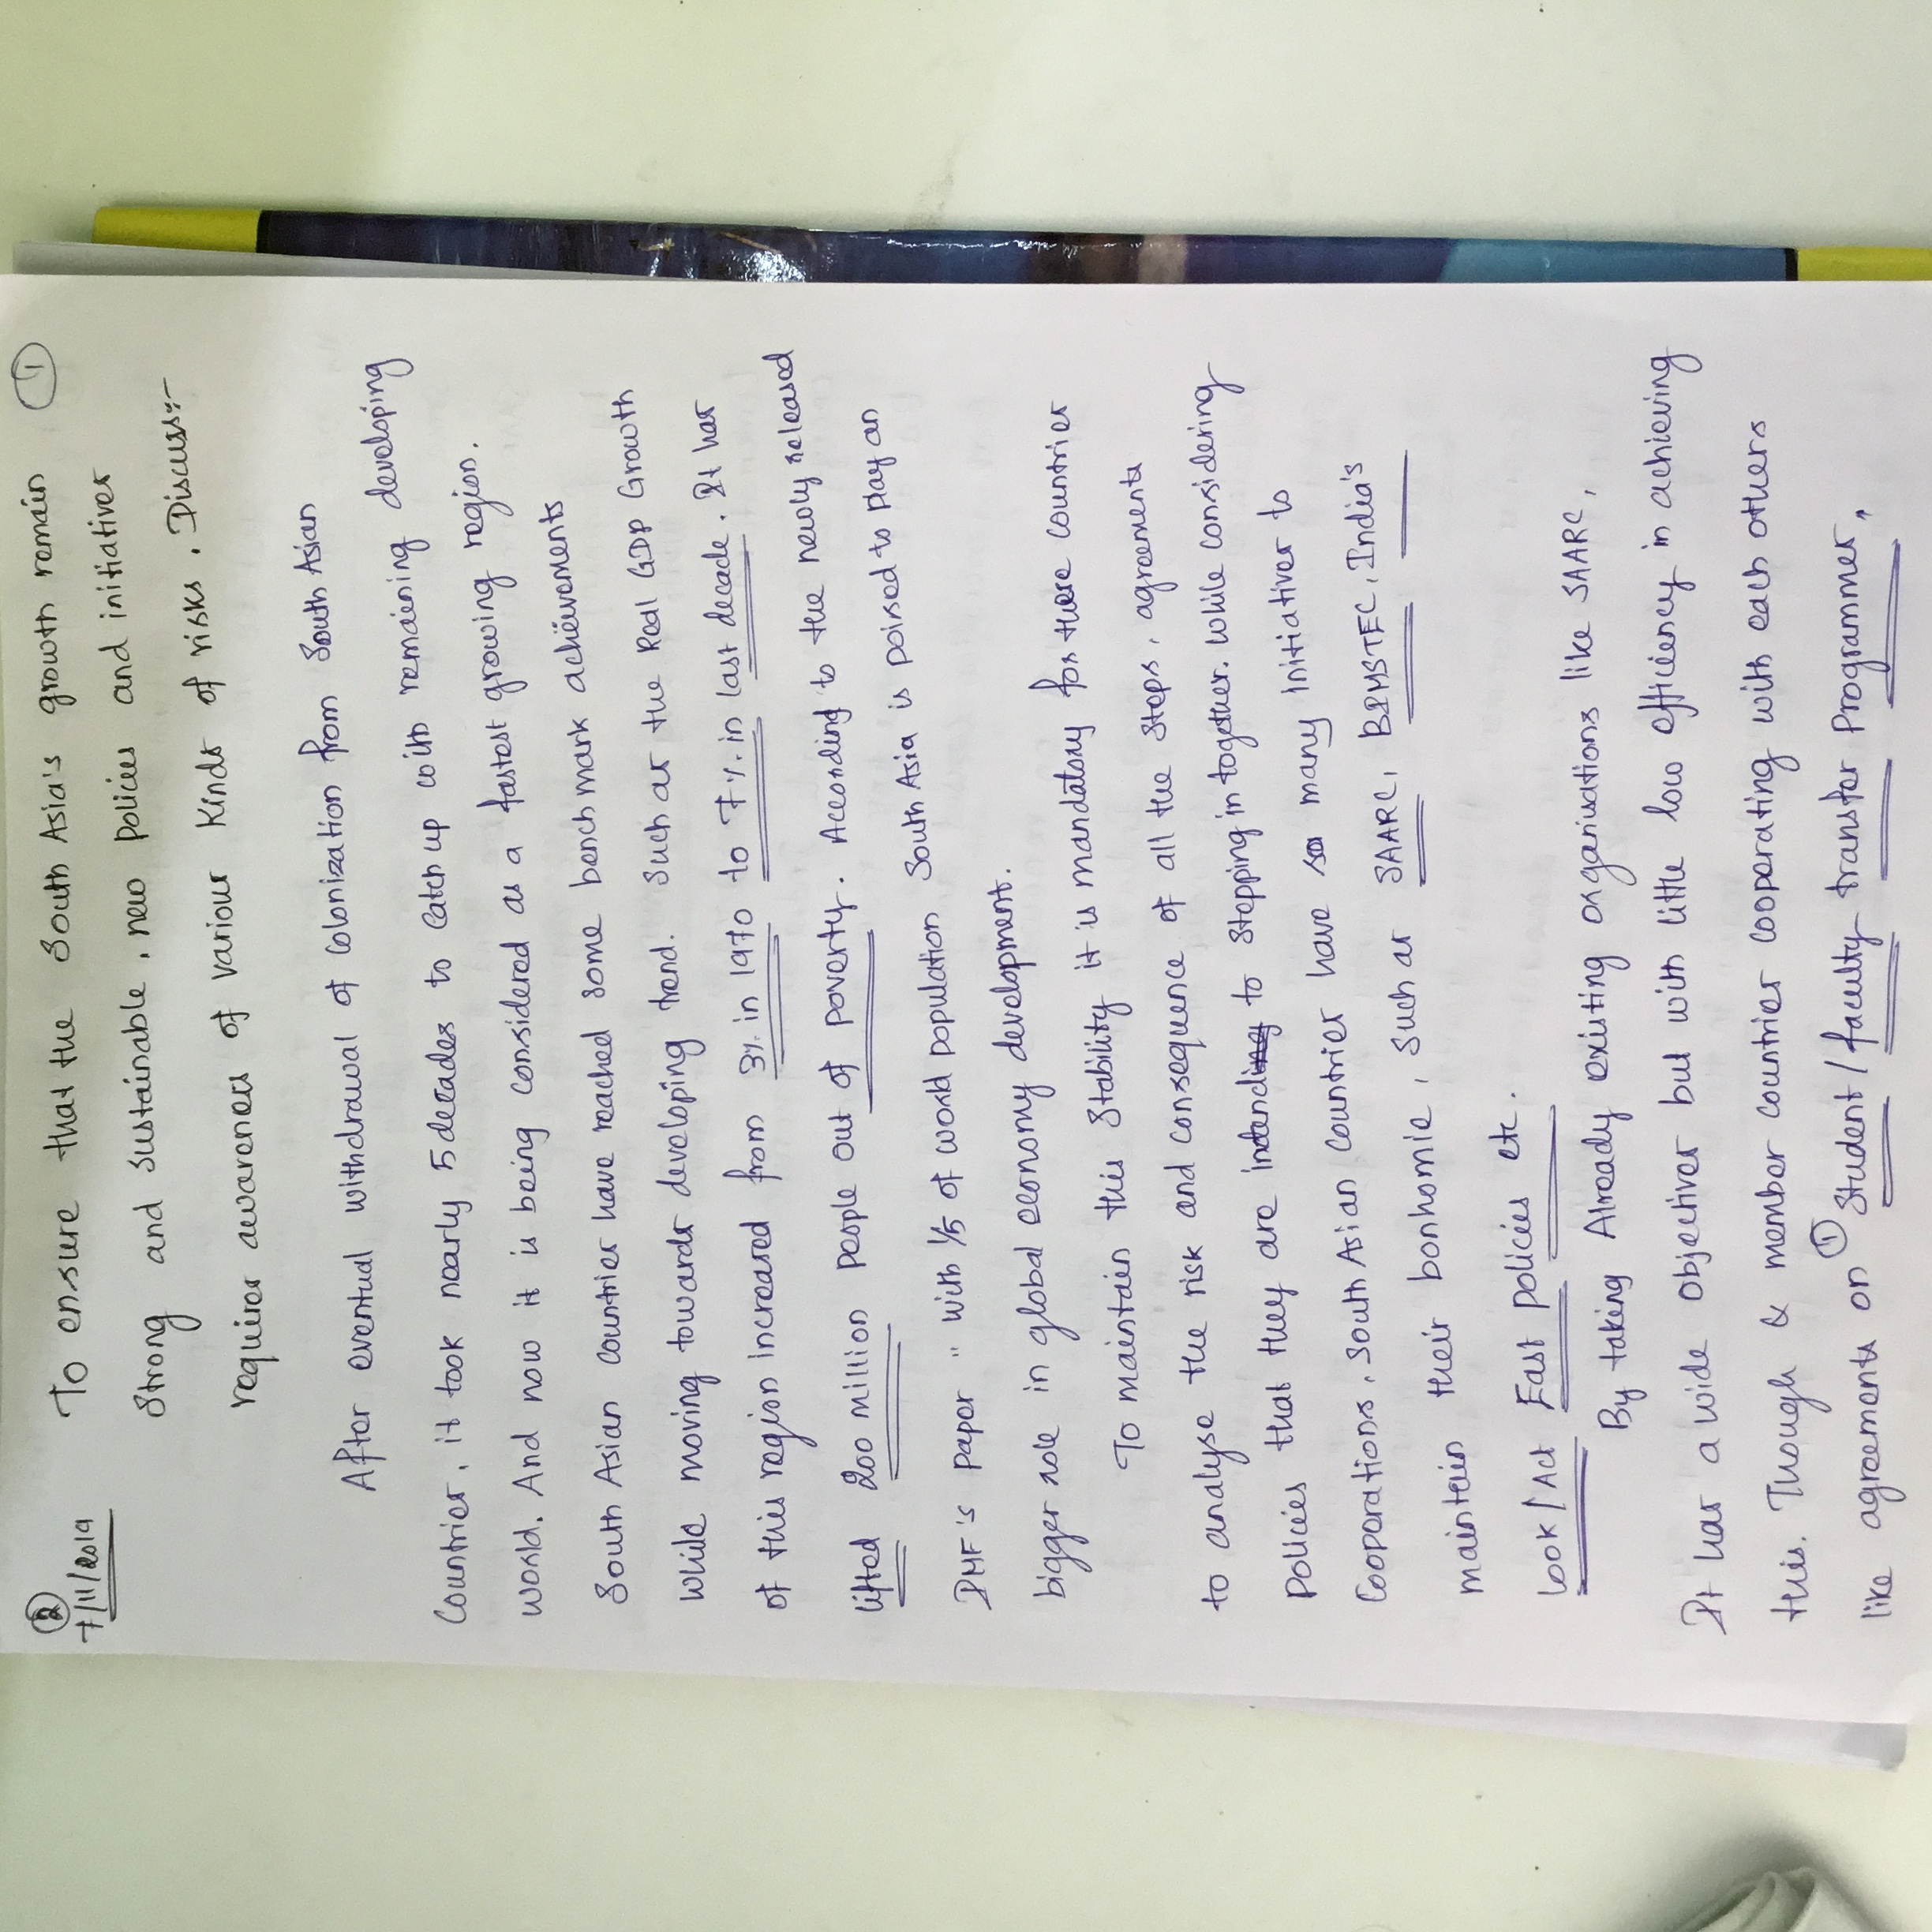 ② To ensure that the South Asia's growth remain ①
7/11/2019
Strong and sustainable, new policies and initiatives
requires awareness of various kinds of risks. Discuss:-
After eventual withdrawal of colonization from South Asian
Countries, it took nearly 5 decades to catch up with remaining developing
world. And now it is being considered as a fastest growing region.
South Asian countries have reached some benchmark achievements
while moving towards developing trend. Such as the Real GDP Growth
of this region increased from 3% in 1970 to 7% in last decade. It has
lifted 200 million people out of poverty. According to the newly released
IMF's paper " with 1/5 of world population South Asia is poised to play an
bigger role in global economy development.
To maintain this stability it is mandatory for these countries
to analyse the risk and consequence of all the steps, agreements
policies that they are intending to stepping in together. While considering
Cooperations, South Asian countries have many initiatives to
maintain their bonhomie, Such as SAARC, BIMSTEC, India's
Look/Act East policies etc.
By taking Already existing organisations like SAARC,
It has a wide objectives but with little low efficiency in achieving
this. Though & member countries cooperating with each others
like agreements on ① Student/faculty transfer Programmes,